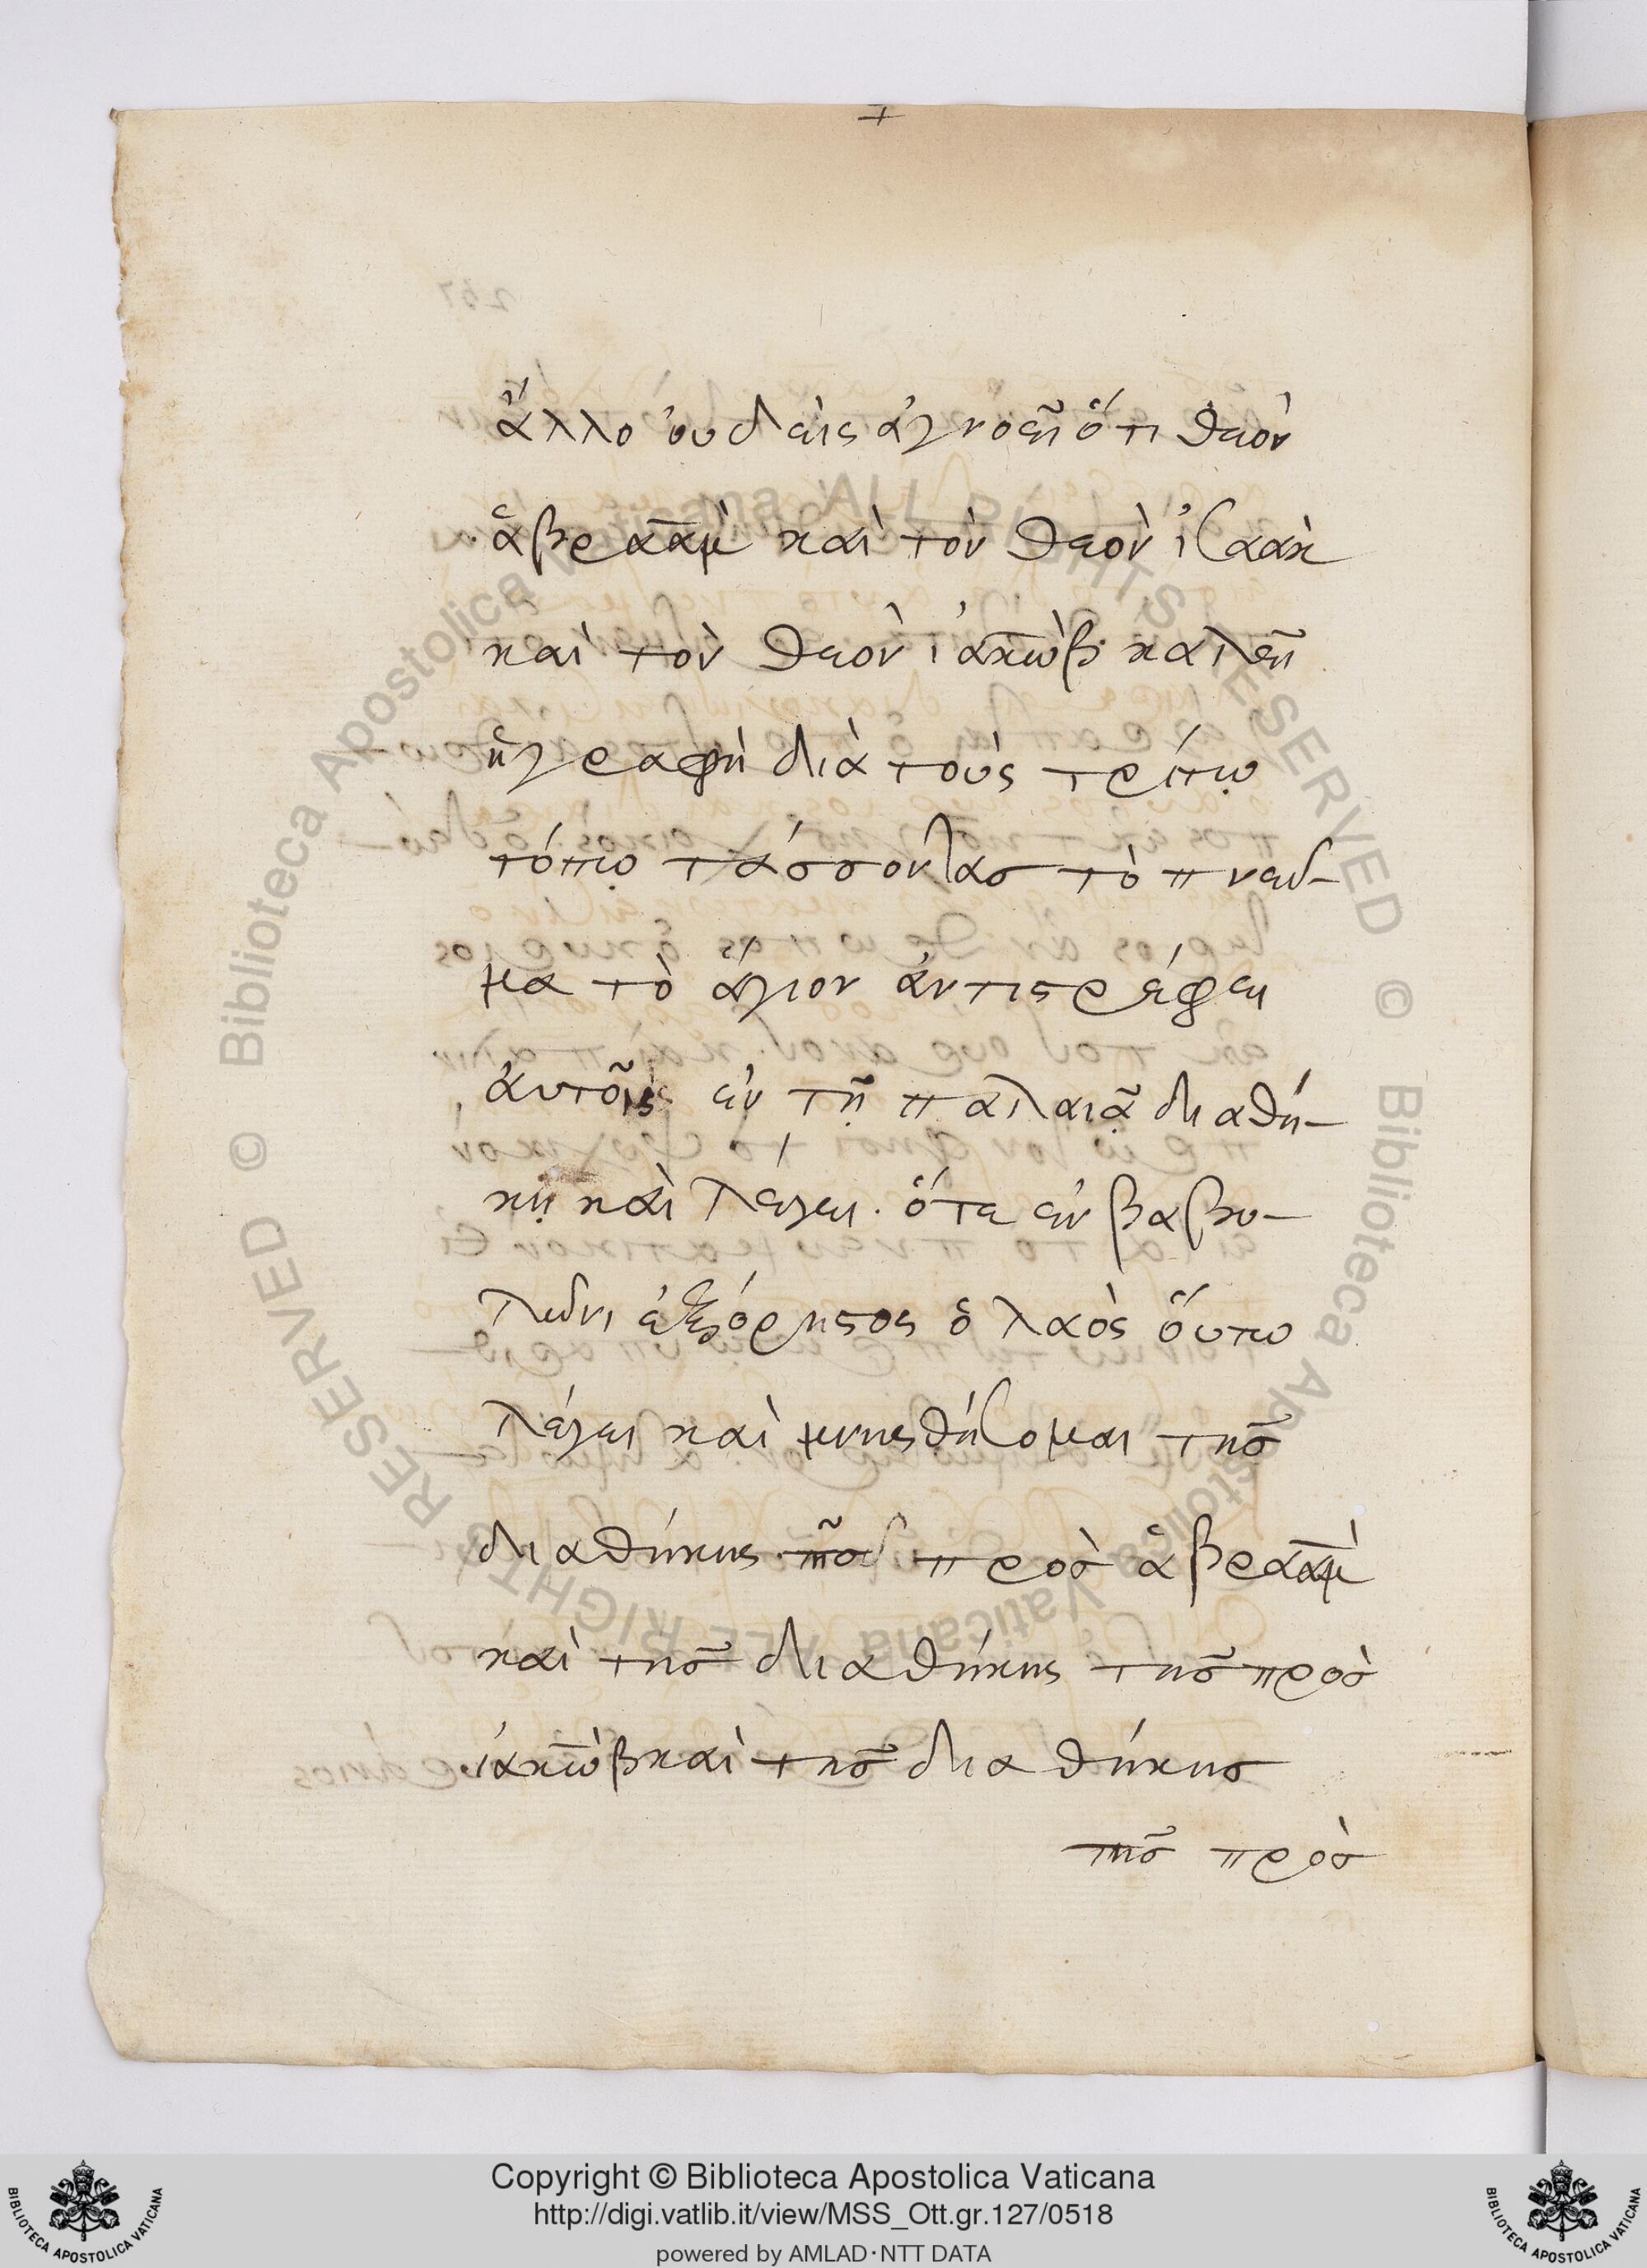 ἄλλο ὀυδεὶς ἀγνοεῖ ὅτι θεὸν
ἁβραὰμ καὶ τὸν θεὸν ἰσαὰκ
καὶ τὸν θεὸν ἰακὼβ καλεῖ
ἡ γραφὴ διὰ τοὺς τρίτῳ
τόπῳ τάσσοντας τὸ πνεῦ-
μα τὸ ἅγιον ἀντιστρέφει
ἀυτοῖς ἐν τῇ παλαιᾷ διαθή-
κῃ καὶ λέγει. ὅτε ἐν βαβυ-
λῶνι ἐξόριστος ὁ λαὸς ὅυτω
λέγει καὶ μνησθήσομαι τῆς
διαθήκης τῆς πρὸς ἁβραὰμ
καὶ τῆς διαθήκης τῆς πρὸς
ἰακὼβ καὶ τῆς διαθήκης
τῆς πρὸς
Copyright © Biblioteca Apostolica Vaticana
http://digi.vatlib.it/view/MSS_Ott.gr.127/0518
powered by AMLAD·NTT DATA
BIBLIOTECA APOSTOLICA VATICANA
BIBLIOTECA APOSTOLICA VATICANA
© Biblioteca Apostolica Vaticana ALL RIGHTS RESERVED
© Biblioteca Apostolica Vaticana ALL RIGHTS RESERVED